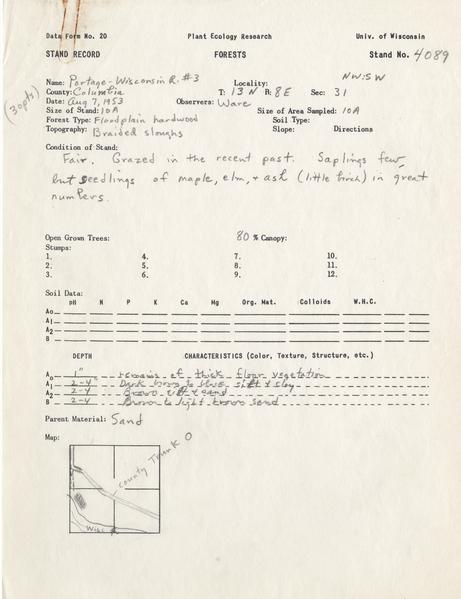 Data Form No. 20 Plant Ecology Research Univ. of Wisconsin
STAND RECORD FORESTS Stand No. 4089
(30pts)
Name: Portage-Wisconsin R. #3 Locality: NW:SW
County: Columbia T: 13N R: 8E Sec: 31
Date: Aug 7, 1953 Observers: Ware
Size of Stand: 10A Size of Area Sampled: 10A
Forest Type: Floodplain hardwood Soil Type:
Topography: Braided sloughs Slope: Directions
Condition of Stand:
Fair. Grazed in the recent past. Saplings few,
but seedlings of maple, elm, + ash (little birch) in great
numbers.
Open Grown Trees: 80 % Canopy:
Stumps:
1. 4. 7. 10.
2. 5. 8. 11.
3. 6. 9. 12.
Soil Data:
pH N P K Ca Mg Org. Mat. Colloids W.H.C.
A0
A1
A2
B
DEPTH CHARACTERISTICS (Color, Texture, Structure, etc.)
A0 1" remains of thick floor vegetation
A1 2-4" Dark brown to blue silt & clay
A2 2-4 Brown silt & sand
B 2-4 Brown to light brown sand
Parent Material: Sand
Map:
County Trunk O
Wisc R